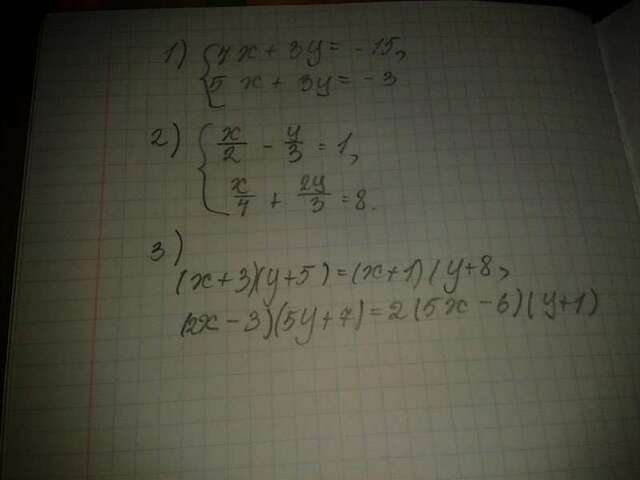 1) { 7x + 3y = -15,
5x + 3y = -3
2) { x/2 - y/3 = 1,
x/4 + 2y/3 = 8.
3)
(x+3)(y+5) = (x+1)(y+8,
(2x-3)(5y+7) = 2(5x-6)(y+1)